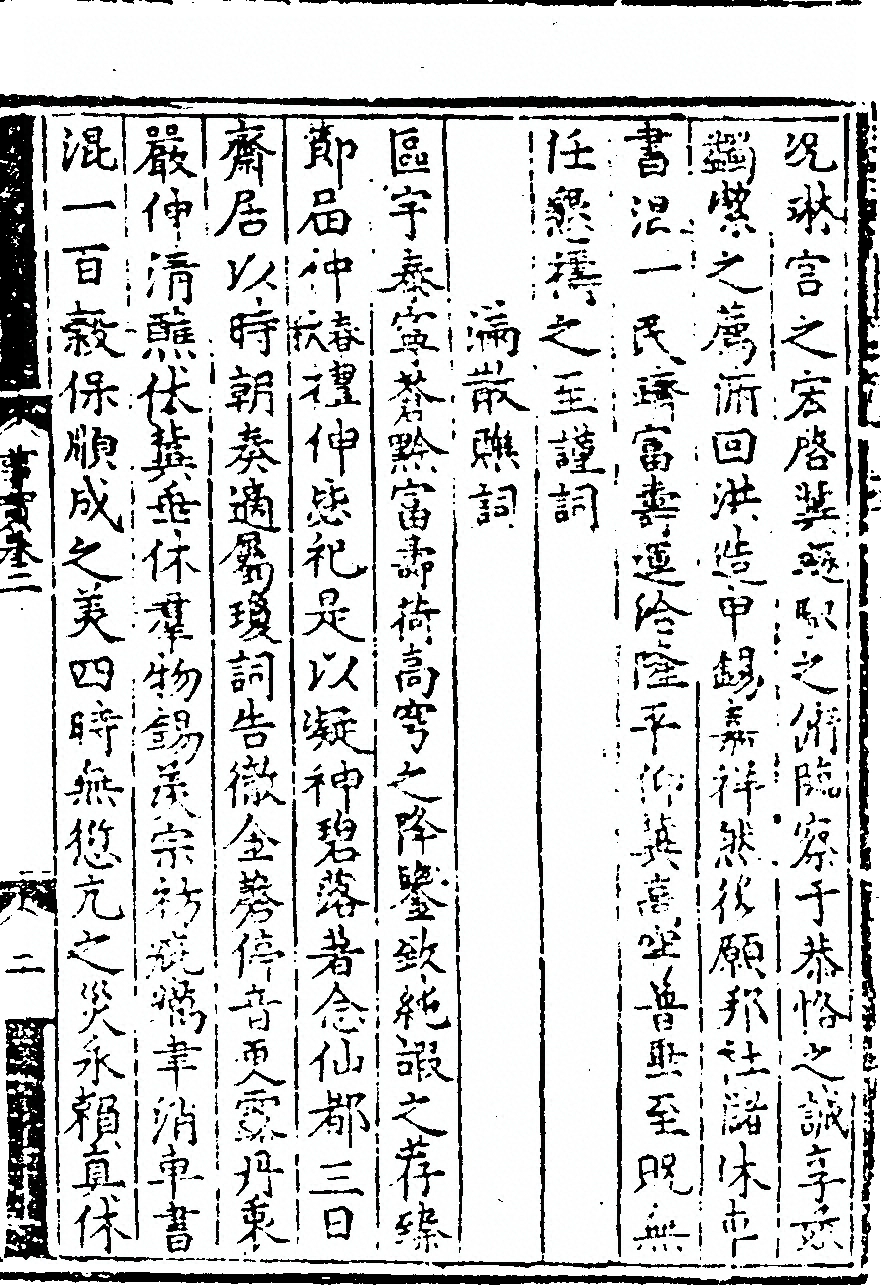 况琳宫之宏啓冀飈馭之俯臨察于恭恪之誠享玆
蠲潔之薦俯回洪造申錫嘉祥然後願邦社儲休車
書混一民躋富壽運洽隆平仰冀高聖普臨至貺無
任懇禱之至謹詞
滿散醮詞
區宇泰寧蒼黔富壽荷高穹之降鑒致純嘏之荐臻
節届仲春禮伸毖祀是以凝神碧落著念仙都三日
齋居以時朝奏適屬瓊詞告徹金磬停音更露丹衷
嚴伸清醮伏冀垂休羣物錫羨宗祊疵癘聿消車書
混一百穀保順成之美四時無愆亢之災永賴真休
事實卷二
二